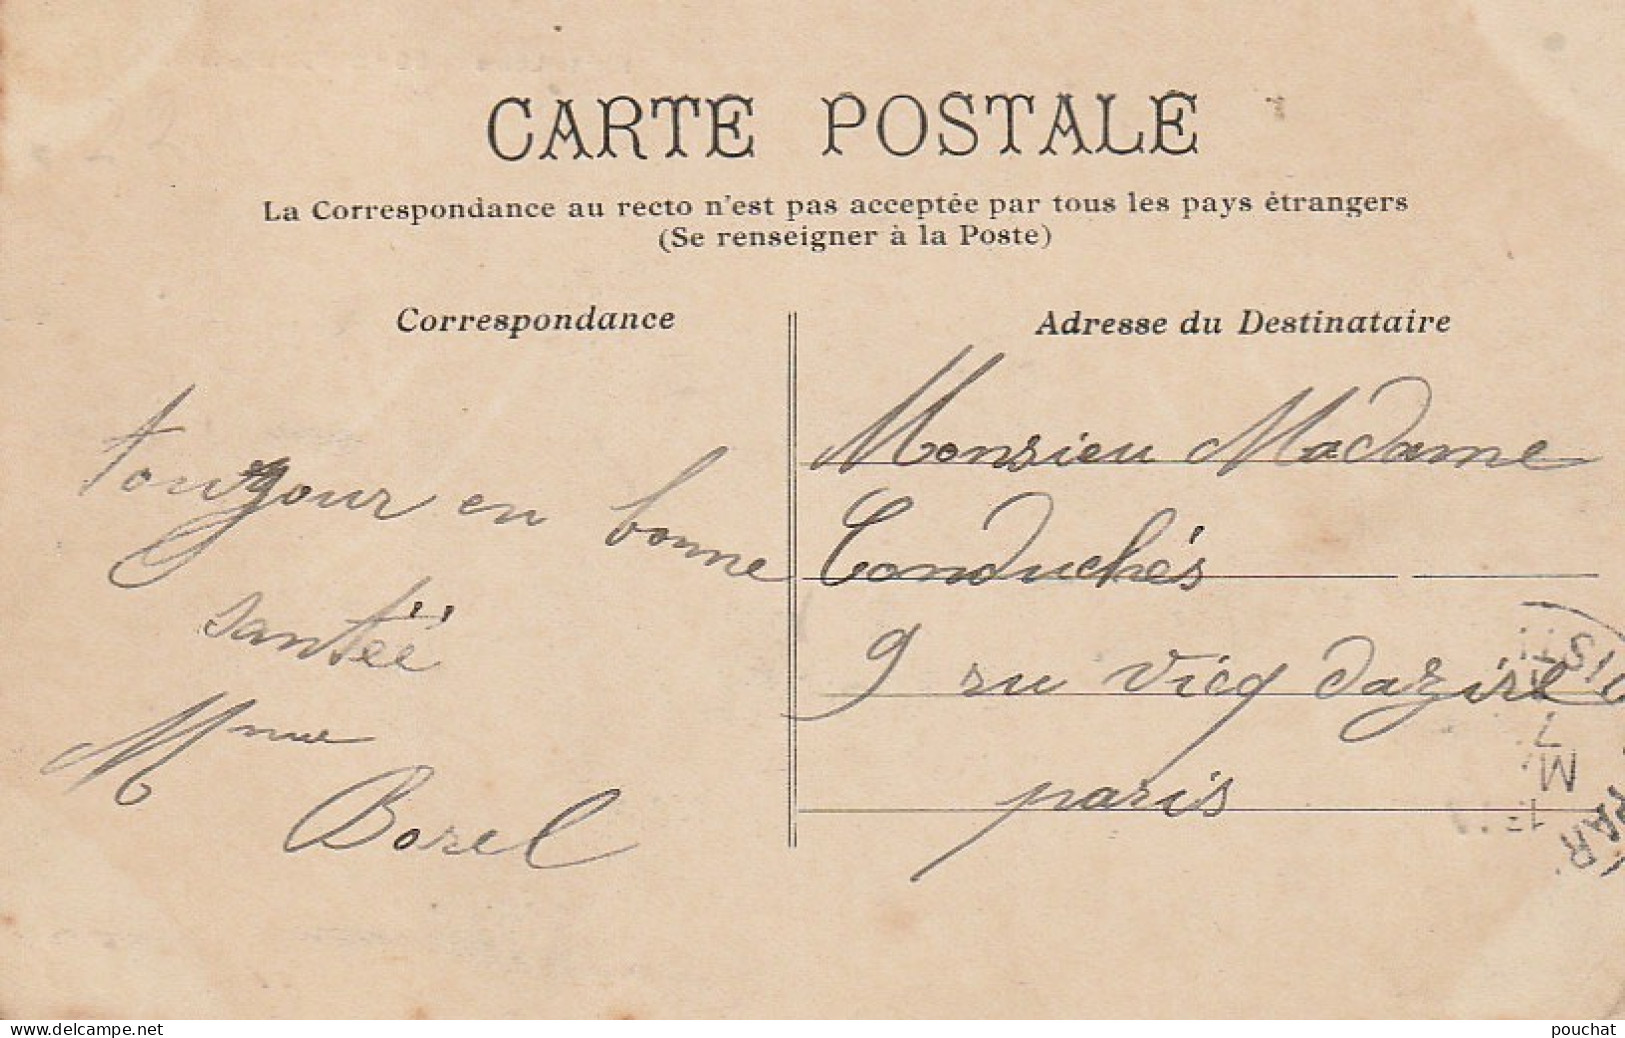 CARTE POSTALE
La Correspondance au recto n'est pas acceptée par tous les pays étrangers
(Se renseigner à la Poste)
Correspondance
toujour en bonne
santéé
Mme
Borel
Adresse du Destinataire
Monsieu Madame
Conduchés
9 ru vicq dazire
paris
www.delcampe.net
pouchat